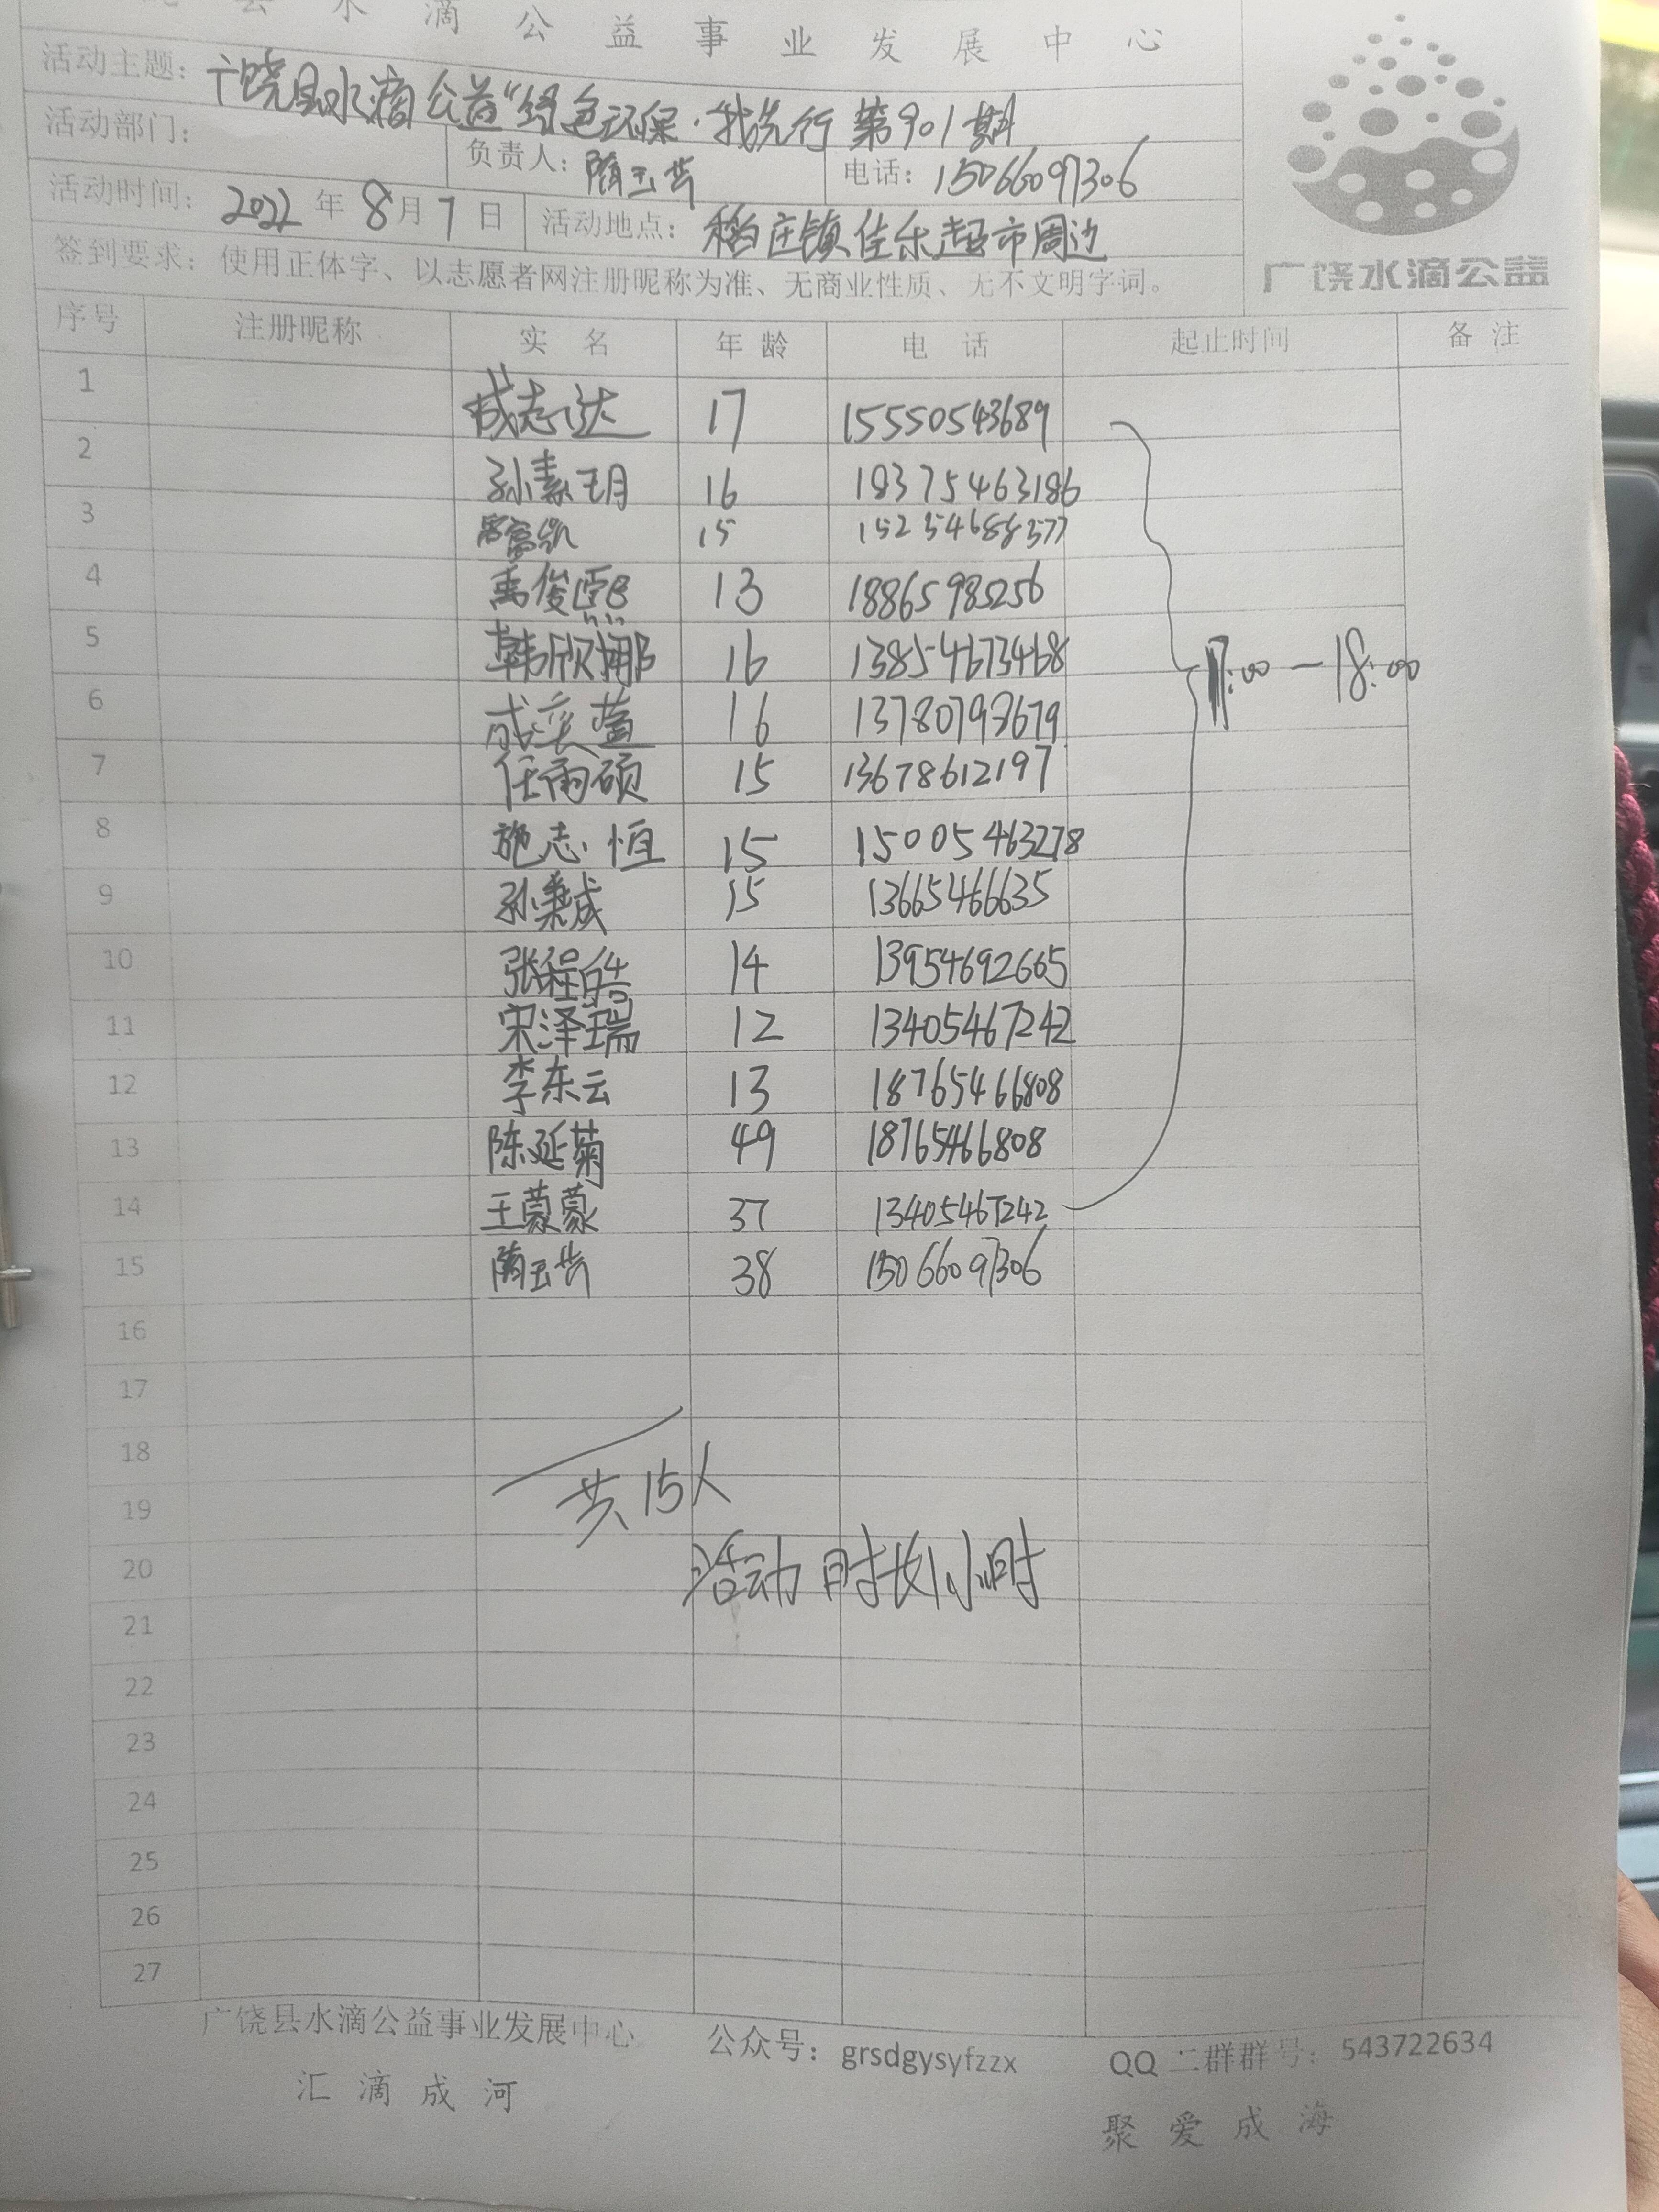 县水滴公益事业发展中心
活动主题：广饶县水滴公益“绿色环保·我先行 第901期
活动部门： 负责人：隋玉芸 电话：15066097306
活动时间：2022年8月7日 活动地点：稻庄镇佳乐超市周边
签到要求：使用正体字、以志愿者网注册昵称为准、无商业性质、无不文明字词。
广饶水滴公益
序号 注册昵称 实名 年龄 电话 起止时间 备注
1 成志达 17 15550543689
2 孙素玥 16 18375463186
3 15 15254688577
4 禹俊熙 13 18865985256
5 韩欣娜 16 13854673468
17:00—18:00
6 成奕萱 16 13780798679
7 任雨硕 15 13678612197
8 施志恒 15 15005463278
9 孙秉成 15 13665466635
10 张程皓 14 13954692665
11 宋泽瑞 12 13405467242
12 李东云 13 18765466808
13 陈延菊 49 18765466808
14 王蒙蒙 37 13405467242
15 隋玉芸 38 15066097306
16
17
18
共15人
19
20 活动时长1小时
21
22
23
24
25
26
27
广饶县水滴公益事业发展中心 公众号：grsdgysyfzzx QQ二群群号：543722634
汇滴成河 聚爱成海